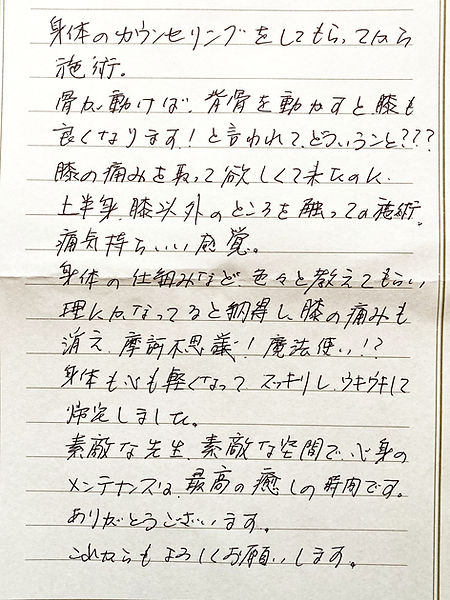 身体のカウンセリングをしてもらってから
施術。
骨が動けば、背骨を動かすと膝も
良くなります！と言われて、どういうこと???
膝の痛みを取って欲しくて来たのに、
上半身、膝以外のところを触っての施術。
痛気持ちいい感覚。
身体の仕組みなど、色々と教えてもらい
理にかなってると納得し、膝の痛みも
消え、摩訶不思議！魔法使い!?
身体も心も軽くなって スッキリし、ウキウキして
帰宅しました。
素敵な先生、素敵な空間で、心身の
メンテナンスは、最高の癒しの時間です。
ありがとうございます。
これからもよろしくお願いします。